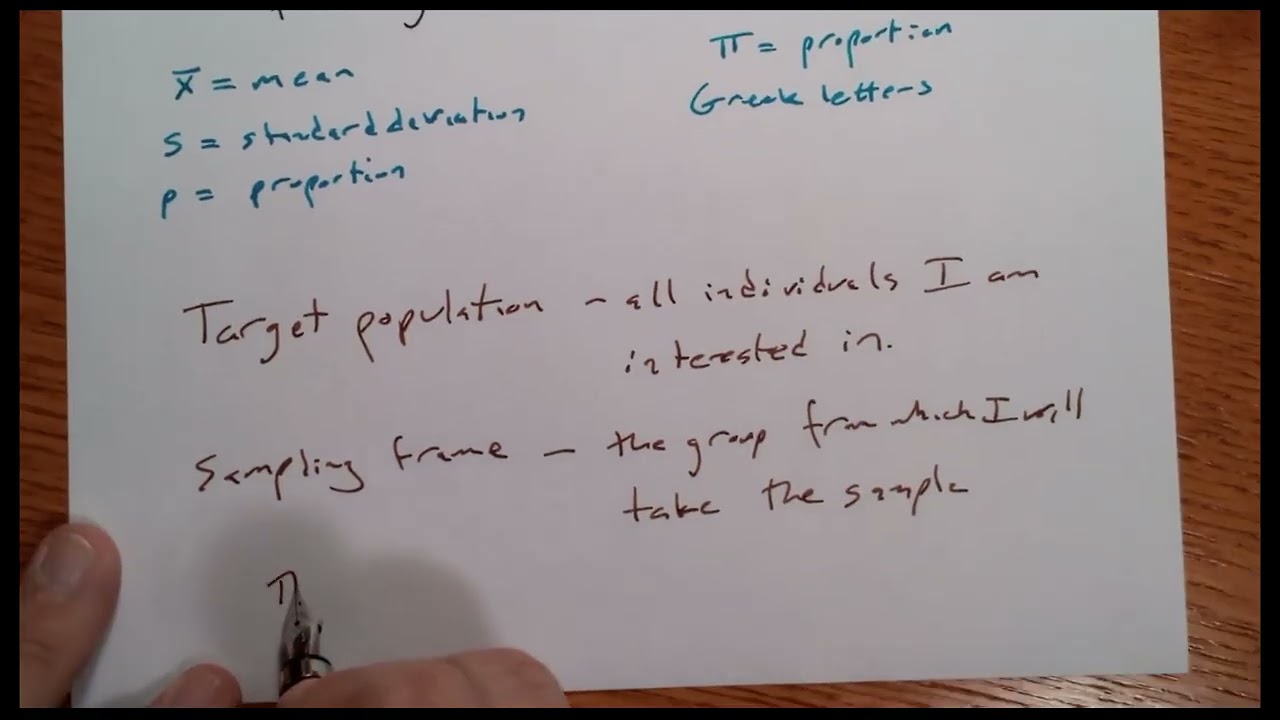 x̄ = mean
s = standard deviation
p = proportion
π = proportion
Greek letters
Target population - all individuals I am
interested in.
Sampling frame - the group from which I will
take the sample